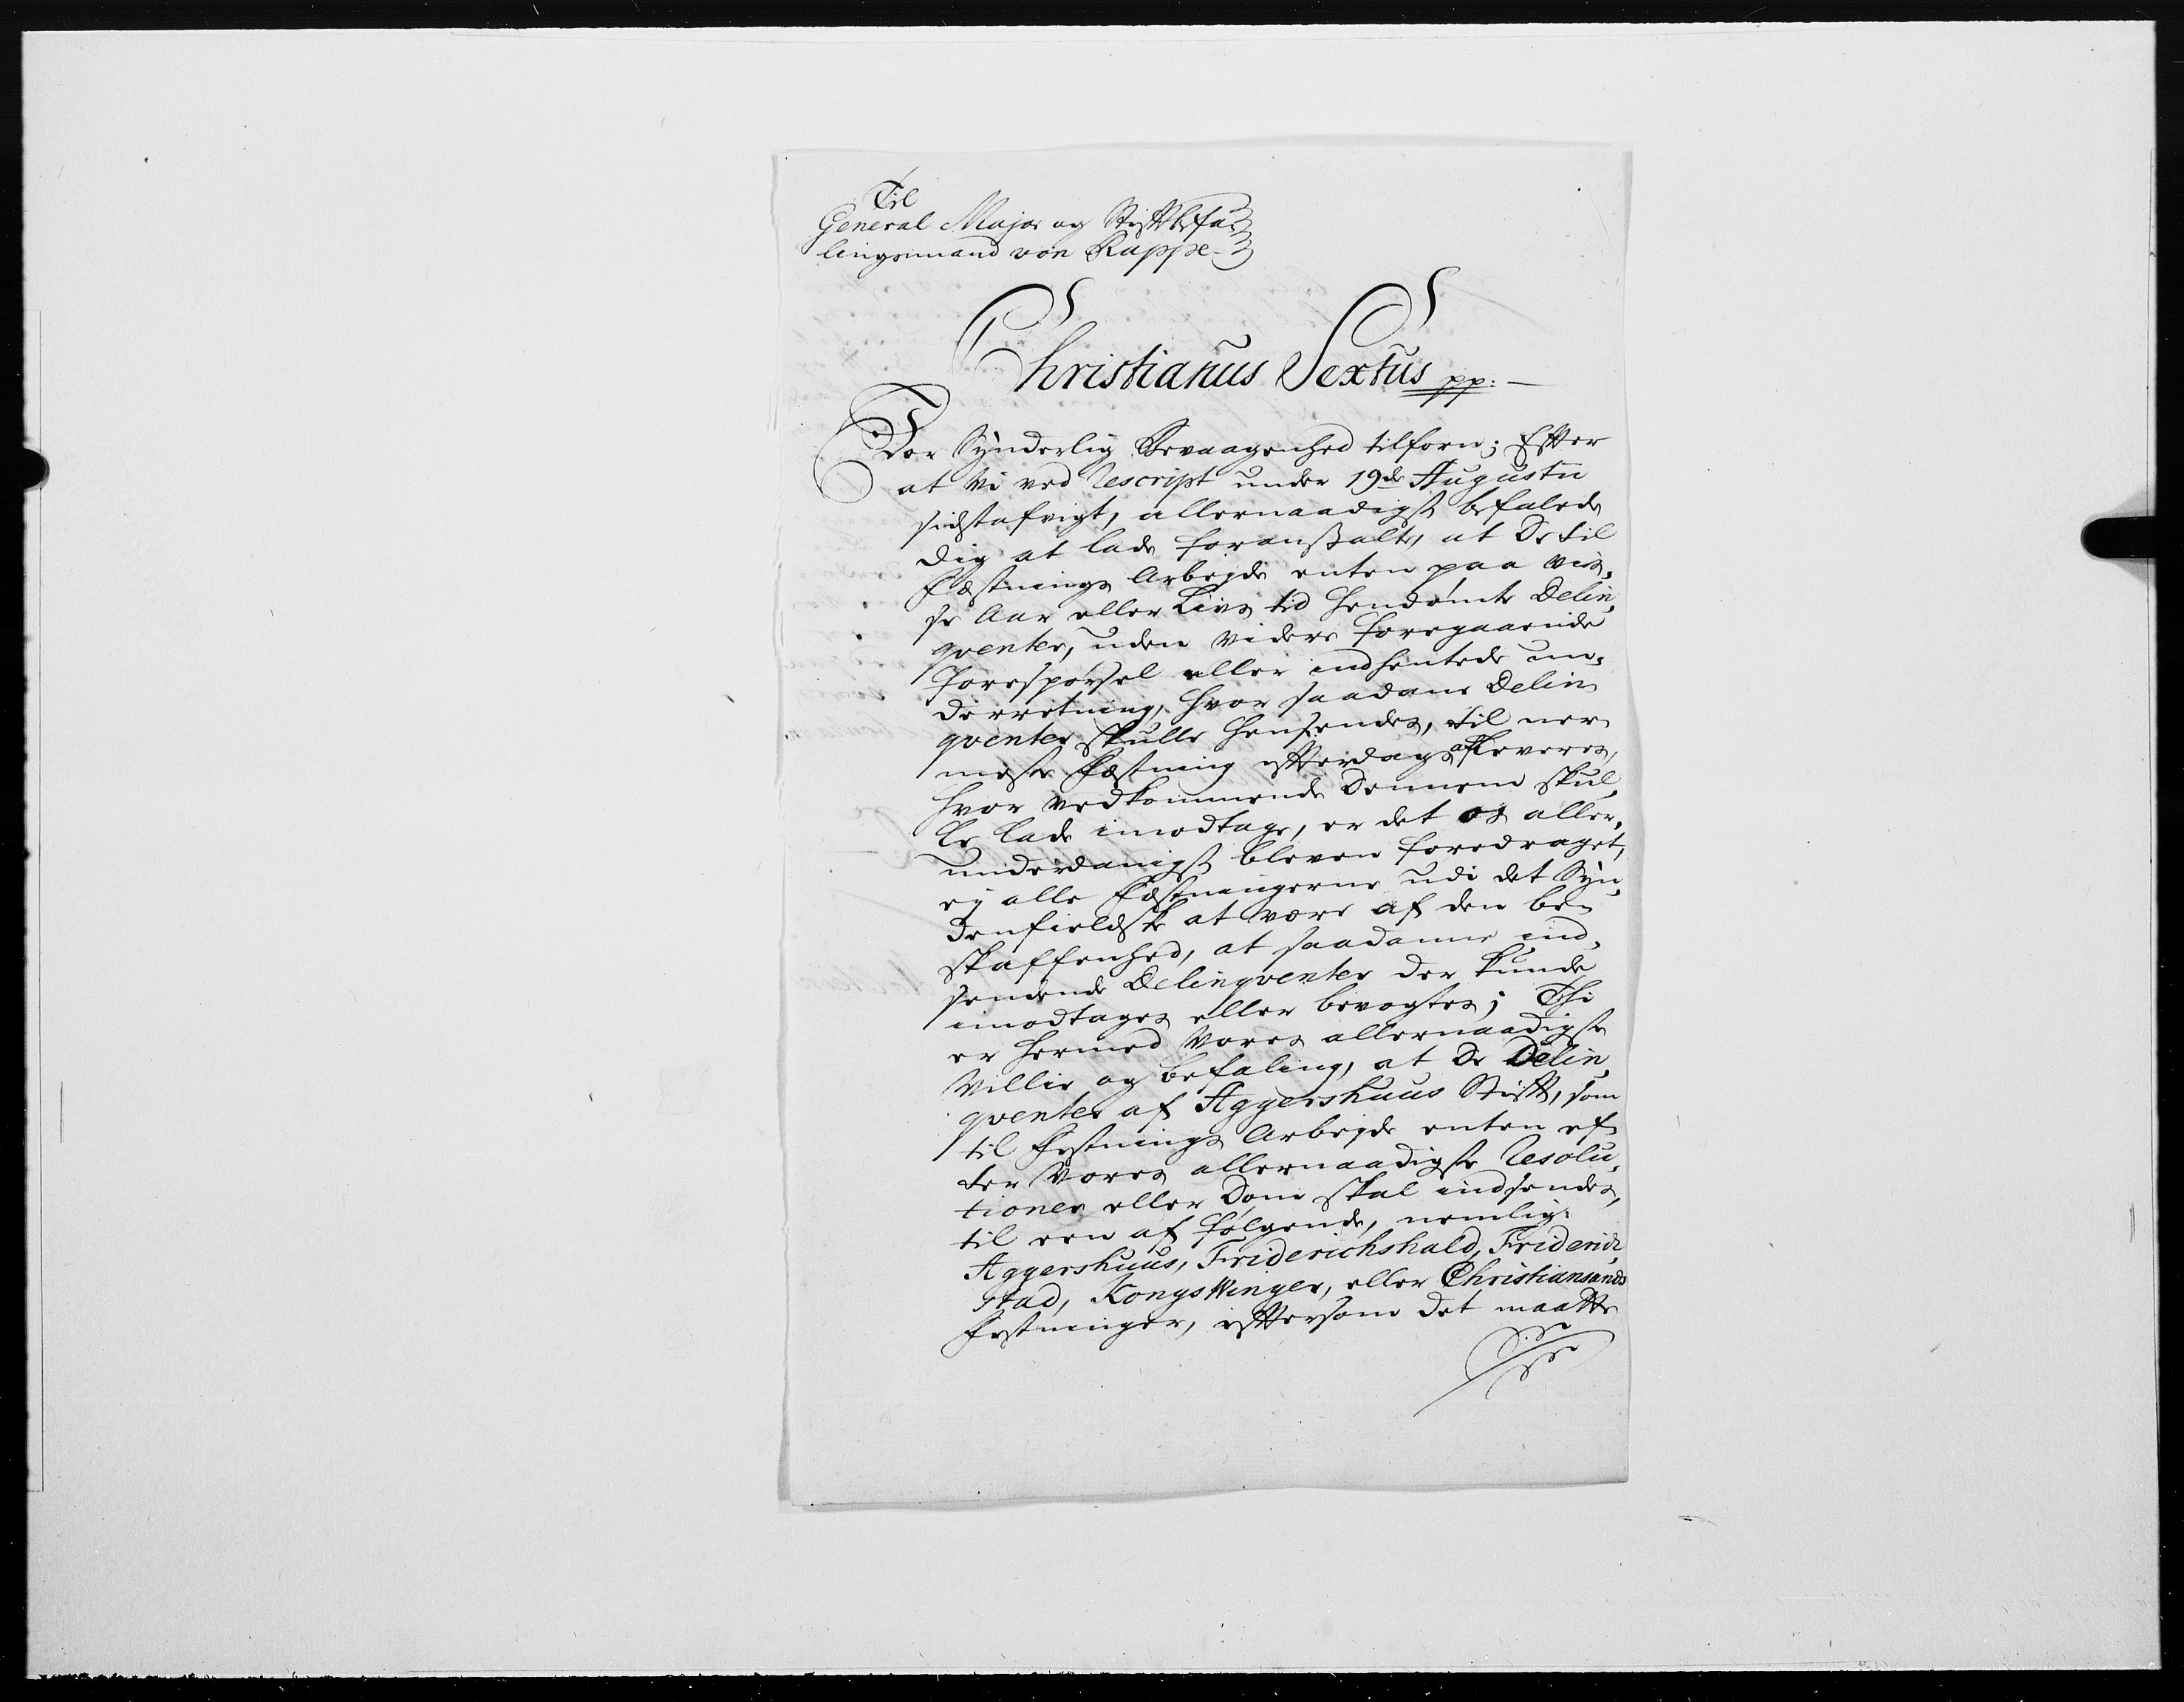 Til
General Major og Stiftbefa-
lingsmand von Rappe
Christianus Sextus pp:
Vor Synderlig Bevaagenhed tilforn; Efter
at Vi ved Rescript under 19de Augustii
sidstafvigt, allernaadigst befalede
dig at lade foranstalte, at De til
Fæstnings Arbejde enten paa vis-
se Aar eller Livs tid hendømte Delin,
qventer, uden videre foregaaende
Forespørsel eller indhentede un-
derretning, hvor saadane Delin
qventer skulle hensendes, til ner-
meste Fæstning efterdags afleveres,
hvor vedkommende dennem skul,
le lade imodtage, er det os aller-
underdanigst bleven foredraget,
ej alle Fæstningerne udi det Syn,
denfieldske at være af den be-
skaffenhed, at saadanne ind,
sendende Delinqventer der kunde
imodtages eller bevogtes; Thi
er hermed Vores allernaadigste
Villie og befaling, at De Delin,
qventer af Aggershuus Stift, som
til Festnings Arbejde enten ef-
ter Vores allernaadigste Resolu,
tioner eller Dom skal indsendes,
til een af følgende, nemlig:
Aggershuus, Friderichshald, Friderich,
stad, KongsWinger, eller Christiansands
Festninger, eftersom det maatte